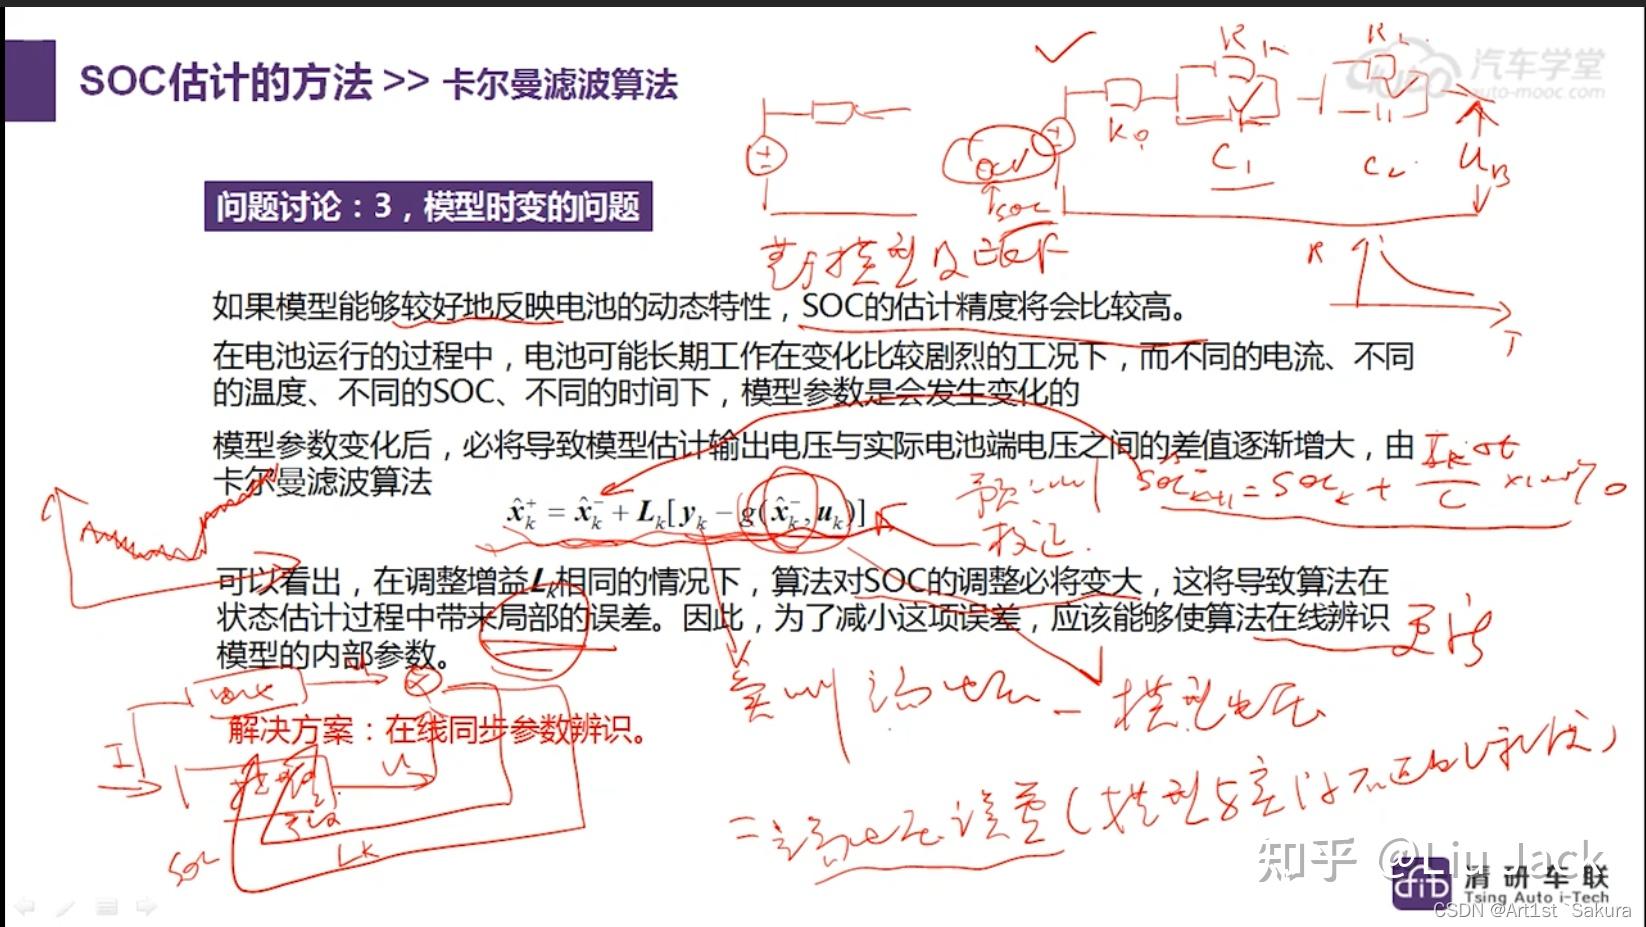 SOC估计的方法 >> 卡尔曼滤波算法
汽车学堂
auto-mooc.com
问题讨论：3，模型时变的问题
R
R₀
C₁
C₂
U_B
OCV
SOC
R
T
如果模型能够较好地反映电池的动态特性，SOC的估计精度将会比较高。
在电池运行的过程中，电池可能长期工作在变化比较剧烈的工况下，而不同的电流、不同
的温度、不同的SOC、不同的时间下，模型参数是会发生变化的
模型参数变化后，必将导致模型估计输出电压与实际电池端电压之间的差值逐渐增大，由
卡尔曼滤波算法
x̂ₖ⁺ = x̂ₖ⁻ + Lₖ[yₖ − g(x̂ₖ⁻, uₖ)]
校正
可以看出，在调整增益Lₖ相同的情况下，算法对SOC的调整必将变大，这将导致算法在
状态估计过程中带来局部的误差。因此，为了减小这项误差，应该能够使算法在线辨识
模型的内部参数。
解决方案：在线同步参数辨识。
I
模型
SOC
Lk
实测端电压 − 模型电压
= 端电压误差
知乎 @Liu Jack
清研车联
Tsing Auto i-Tech
CSDN @Art1st_Sakura